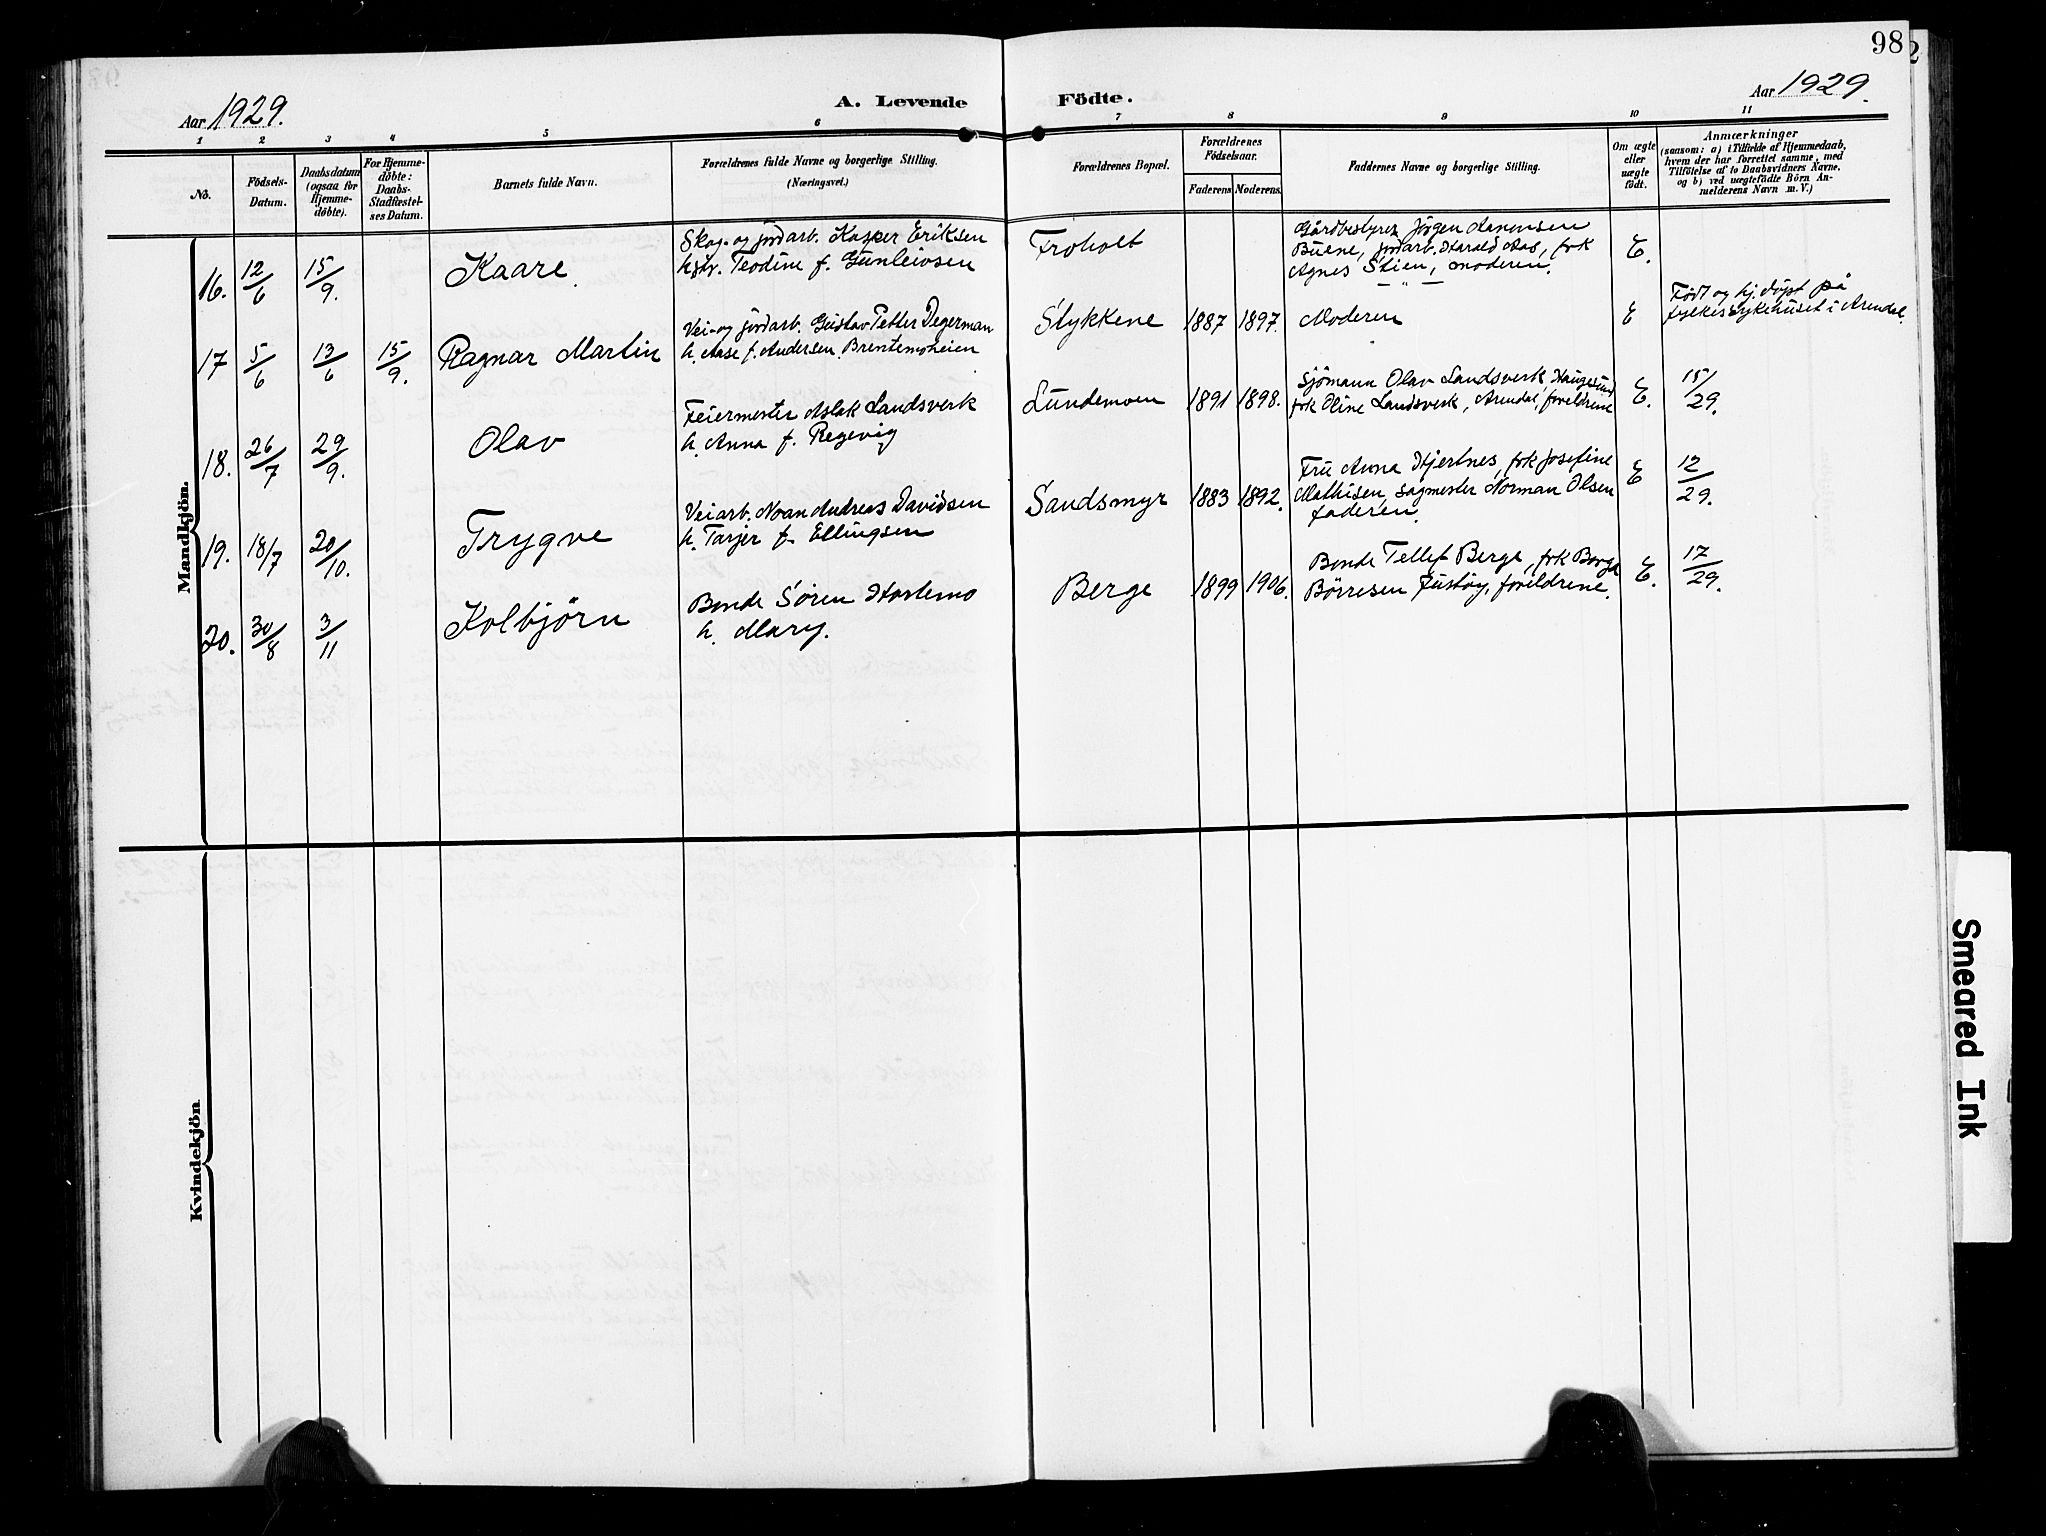 98
Aar 1929.
A. Levende Födte.
Aar 1929.
1 2 3 4 5 6 7 8 9 10 11
No.
Födsels-
Datum.
Daabsdatum
(ogsaa for
Hjemme-
döbte).
For Hjemme-
döbte:
Daabs-
Stadfæstel-
ses Datum.
Barnets fulde Navn.
Forældrenes fulde Navne og borgerlige Stilling.
(Næringsvei.)
Forældrenes Bopæl.
Forældrenes
Födselsaar.
Faderens. Moderens.
Faddernes Navne og borgerlige Stilling.
Om ægte
eller
uægte
födt.
Anmærkninger
(saasom: a) i Tilfælde af Hjemmedaab,
hvem der har forrettet samme, med
Tilföielse af to Daabsvidners Navne,
og b) ved uægtefödte Börn An-
melderens Navn m. V.)
Mandkjön.
16. 12/6 15/9. Kaare.
Skog- og jordarb. Kasper Eriksen
hstr. Teodine f. Gunleivsen
Froholt
Gårdbestyrer Jörgen Aanensen
Buene, jordarb. Harald Aas, frk
Agnes Stien, moderen.
E.
17 5/6 13/6 15/9. Ragnar Martin
Vei- og jordarb. Gustav Petter Degerman
h. Aase f. Andersen. Brentemoheien
Stykkene 1887 1897. Moderen E
Födt og hj.döpt på
fylkessykehuset i Arendal.
18. 26/7 29/9. Olav
Feiermester Aslak Landsverk
h. Anna f. Regevig
Lundemoen 1891 1898.
Sjömann Olav Landsverk, Haugesund
frk Oline Landsverk, Arendal, foreldrene
E. 15/29.
19. 18/7 20/10. Trygve
Veiarb. Noan Andreas Davidsen
h. Tarjer f. Ellingsen
Sandsmyr 1883 1892.
Fru Anna Hjertnes, frk Josefine
Mathisen, sagmester Norman Olsen
faderen.
E 12/29.
20. 30/8 3/11 Kolbjörn
Bonde Sören Haslemo
h. Mary.
Berge 1899 1906.
Bonde Tellef Berge, frk Borga
Börresen Justöy, foreldrene.
E. 17/29.
Kvindekjön
Smeared Ink